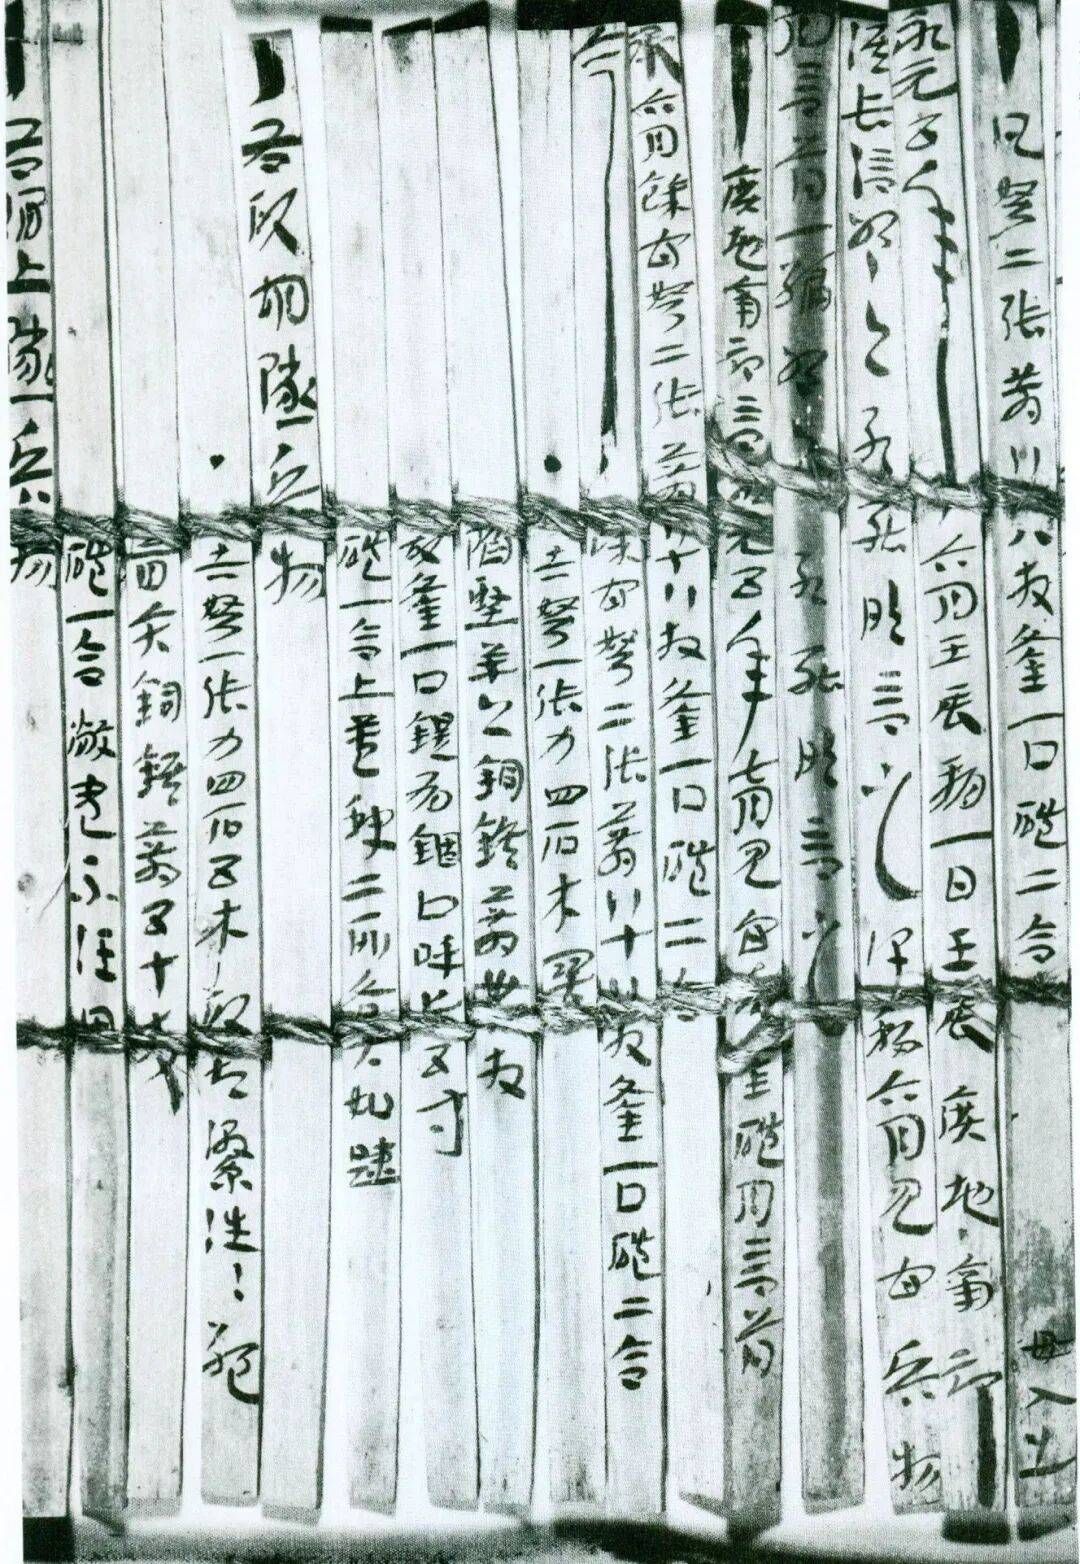 凡弩二張箭八十八枚釜一口磑二合　毋入出
永元五年六月壬辰朔一日壬辰廣地南部
候長信叩頭死罪敢言之謹移六月見官兵物
月言簿一編叩頭死罪敢言之
廣地南部言永元五年七月見官兵釜磑月言簿
承六月餘官弩二張箭八十八枚釜一口磑二合
今餘官弩二張箭八十八枚釜一口磑二合
・赤弩一張力四石木關
陷堅羊頭銅鍭箭卅八枚
故釜一口鍉有錮口呼長五寸
磑一合上蓋缺二所各大如疎
右破胡隧兵物
・赤弩一張力四石五木破起繳往往絕
盲矢銅鍭箭五十枚
磑一合敝盡不任用
右澗上隧兵物